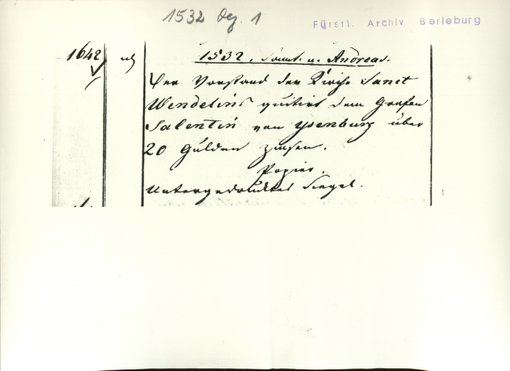 1532 Dez. 1
Fürstl. Archiv Berleburg
1642
1532. Sonnt. n. Andreas.
Der Vorstand der Kirche Sanct
Wendelins quitirt dem Grafen
Salentin von Ysenburg über
20 Gulden Zinsen.
Papier.
Untergedrucktes Siegel.